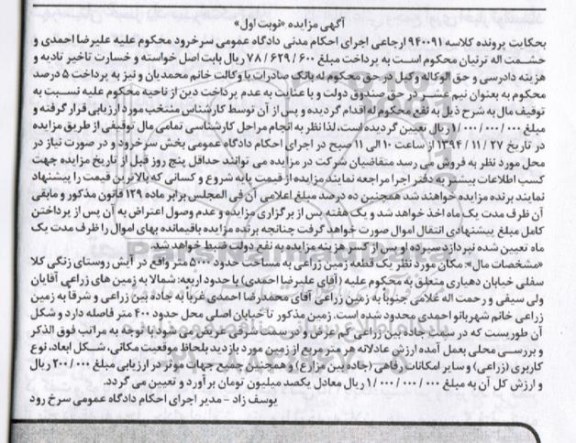 آگهی مزایده «نوبت اول»
بحکایت پرونده کلاسه ۹۴۰۰۹۱ ارجاعی اجرای احکام مدنی دادگاه عمومی سرخرود محکوم علیه علیرضا احمدی و
حشمت اله ترتیان محکوم است به پرداخت مبلغ ۶۰۰ / ۶۲۹ / ۷۸ ریال بابت اصل خواسته و خسارت تاخیر تادیه و
هزینه دادرسی و حق الوکاله وکیل در حق محکوم له بانک صادرات با وکالت خانم محمدیان و نیز به پرداخت ۵ درصد
محکوم به بعنوان نیم عشر در حق صندوق دولت و با عنایت به عدم پرداخت دین از ناحیه محکوم علیه نسبت به
توقیف مال به شرح ذیل به نفع محکوم له اقدام گردیده و پس از آن توسط کارشناس منتخب مورد ارزیابی قرار گرفته و
مبلغ ۰۰۰ / ۰۰۰ / ۰۰۰ / ۱ ریال تعیین گردیده است، لذا نظر به انجام مراحل کارشناسی تمامی مال توقیفی از طریق مزایده
در تاریخ ۲۷ / ۱۱ / ۱۳۹۴ از ساعت ۱۰ الی ۱۱ صبح در اجرای احکام دادگاه عمومی بخش سرخرود و در صورت نیاز در
محل مورد نظر به فروش می رسد متقاضیان شرکت در مزایده می توانند حداقل پنج روز قبل از تاریخ مزایده جهت
کسب اطلاعات بیشتر به دفتر اجرا مراجعه نمایند مزایده از قیمت پایه شروع و کسانی که بالاترین قیمت را پیشنهاد
نمایند برنده مزایده خواهند شد همچنین ده درصد مبلغ اعلامی آن فی المجلس برابر ماده ۱۲۹ قانون مذکور و مابقی
آن ظرف مدت یک ماه اخذ خواهد شد و یک هفته پس از برگزاری مزایده و عدم وصول اعتراض به آن پس از پرداختن
کامل مبلغ پیشنهادی انتقال اموال صورت خواهد گرفت چنانچه برنده مزایده باقیمانده بهای اموال را ظرف مدت یک
ماه تعیین شده نپردازد سپرده او پس از کسر هزینه مزایده به نفع دولت ضبط خواهد شد.
«مشخصات مال»: مکان مورد نظر یک قطعه زمین زراعی به مساحت حدود ۵۰۰۰ متر واقع در آیش روستای زنگی کلا
سفلی خیابان دهیاری متعلق به محکوم علیه (آقای علیرضا احمدی) با حدود اربعه: شمالا به زمین های زراعی آقایان
ولی سیفی و رحمت اله غلامی جنوبا به زمین زراعی آقای محمدرضا احمدی غربا به جاده بین زراعی و شرقا به زمین
زراعی خانم شهربانو احمدی محدود شده است. زمین مذکور تا خیابان اصلی محل حدود ۴۰۰ متر فاصله دارد و شکل
آن طوریست که در سمت جاده بین زراعی کم عرض و در سمت شرقی عریض می شود با توجه به مراتب فوق الذکر
و بررسی محلی بعمل آمده ارزش عادلانه هر متر مربع از زمین مورد بازدید بلحاظ موقعیت مکانی، شکل ابعاد، نوع
کاربری (زراعی) و سایر امکانات رفاهی (جاده بین مزارع) و همچنین جمیع جهات موثر در ارزیابی مبلغ ۲۰۰/۰۰۰ ریال
و ارزش کل آن به مبلغ ۰۰۰ / ۰۰۰ / ۰۰۰ / ۱ ریال معادل یکصد میلیون تومان برآورد و تعیین می گردد.
یوسف زاد - مدیر اجرای احکام دادگاه عمومی سرخ رود